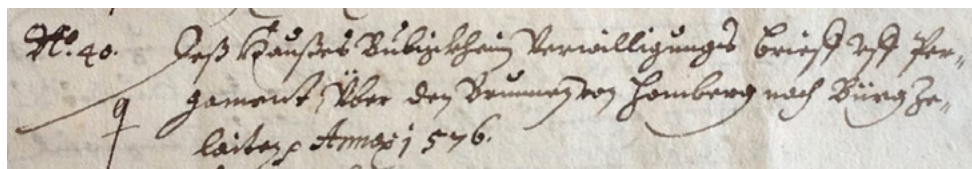 No. 40. Deß Haußes Bubigkheim Verwilligungs brieff uff Per-
gament, Über den Brunnen von Homberg nach Bürg ze-
laiten p Anno 1576.